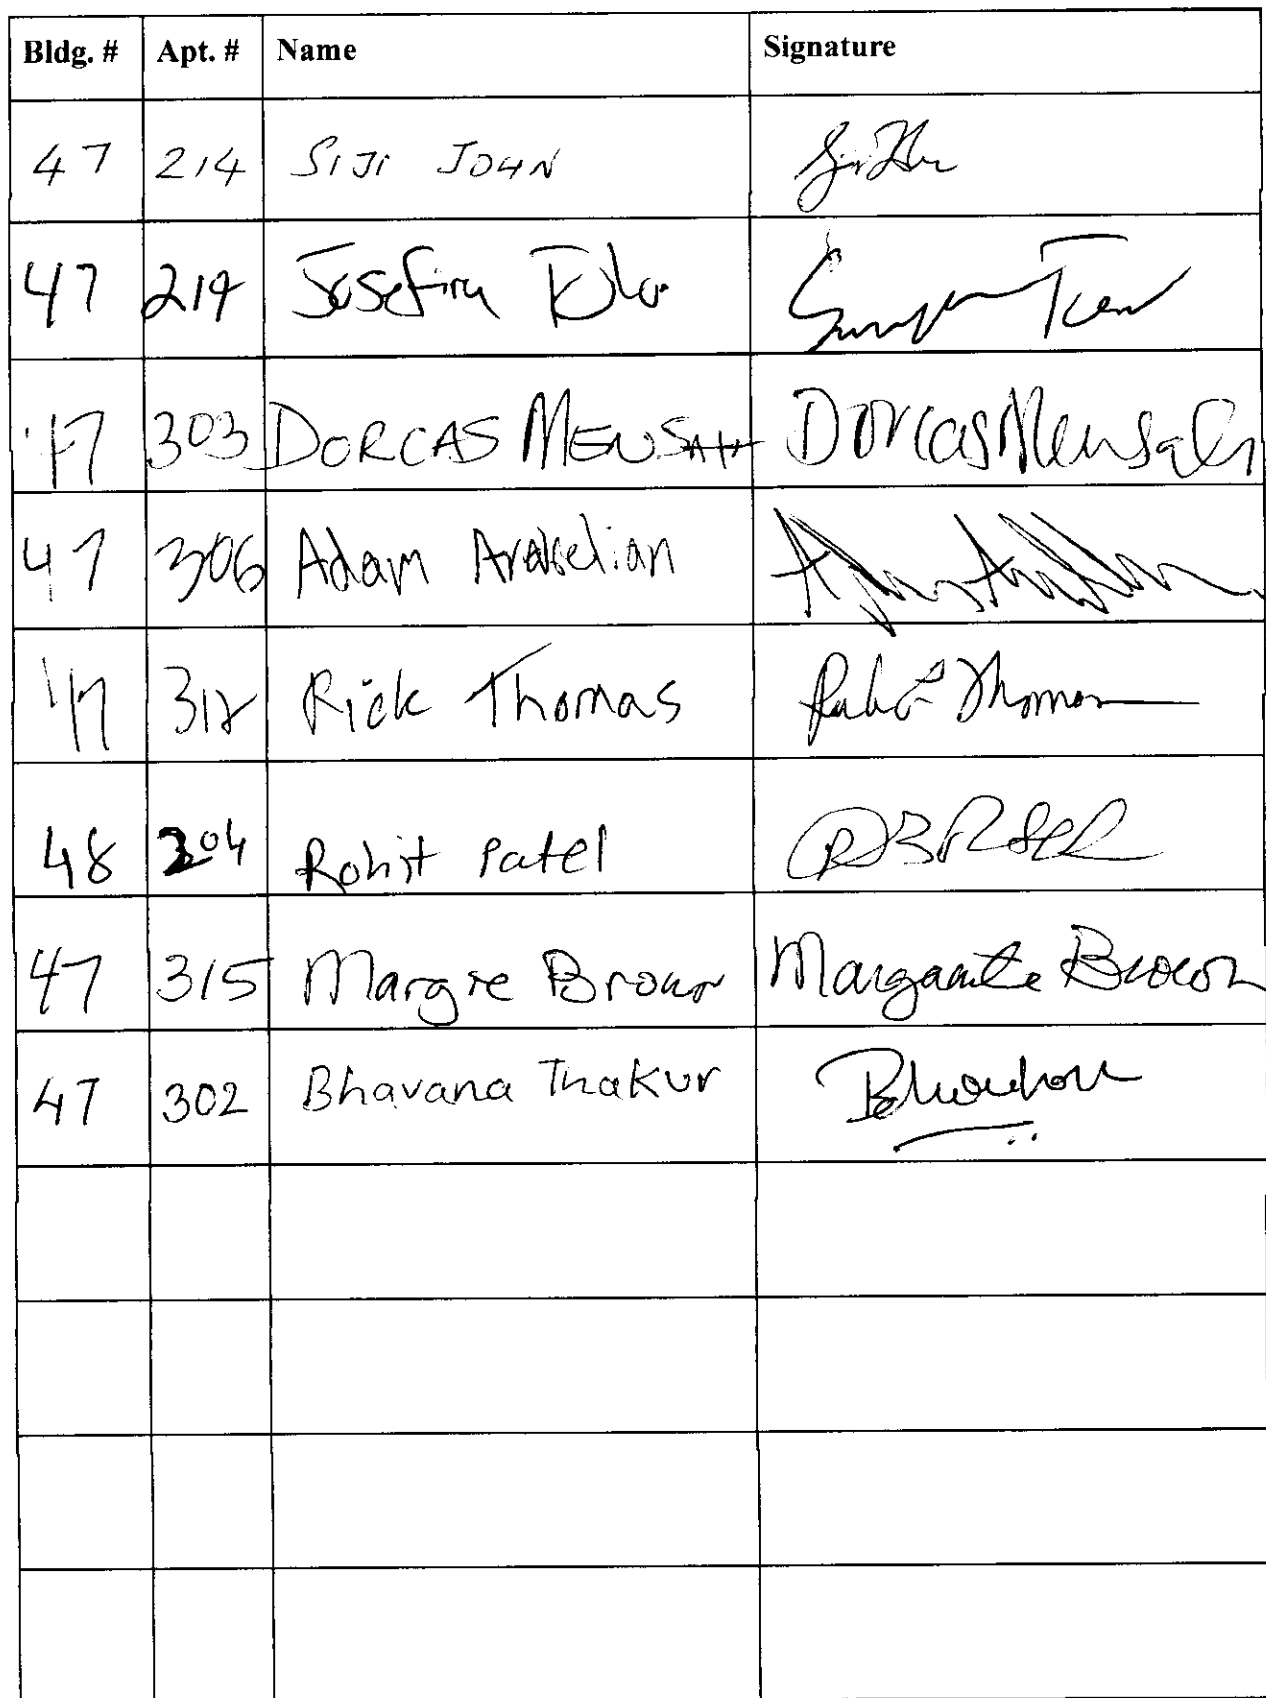 Bldg. # Apt. # Name Signature
47 214 SIJI JOHN
47 219 Josefina
47 303 DORCAS MENSAH Dorcas Mensah
47 306 Adam Arakelian
47 312 Rick Thomas Thomas
48 204 Rohit Patel
47 315 Margie Brown Margaarite Brown
47 302 Bhavana Thakur